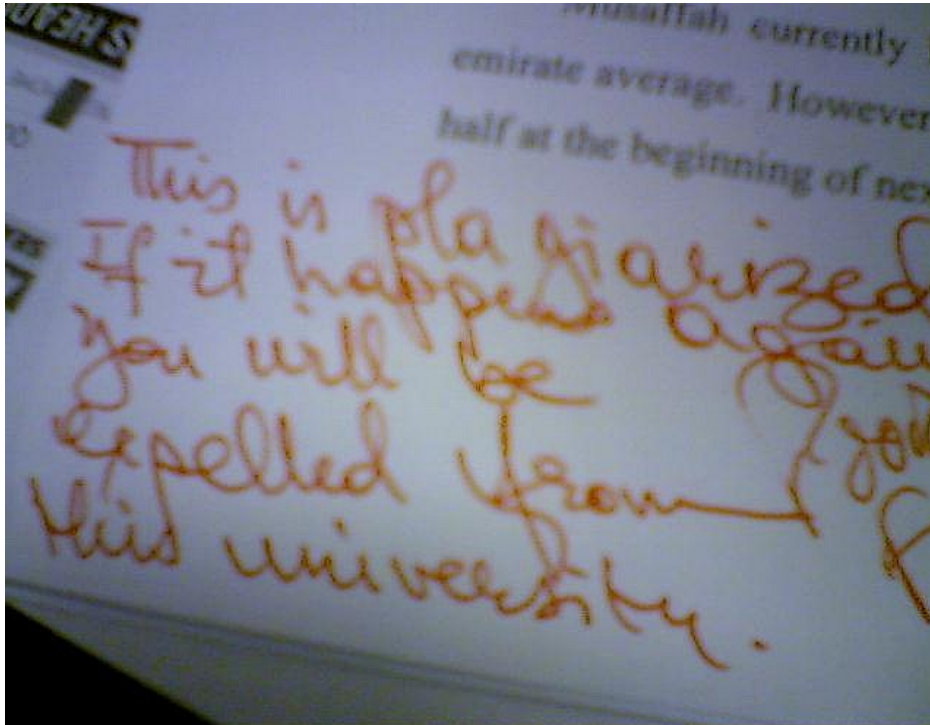 S HEAD
Musaffah currently
emirate average. However
half at the beginning of nex
This is plagiarized
If it happens again
you will be
you
expelled from
this university.